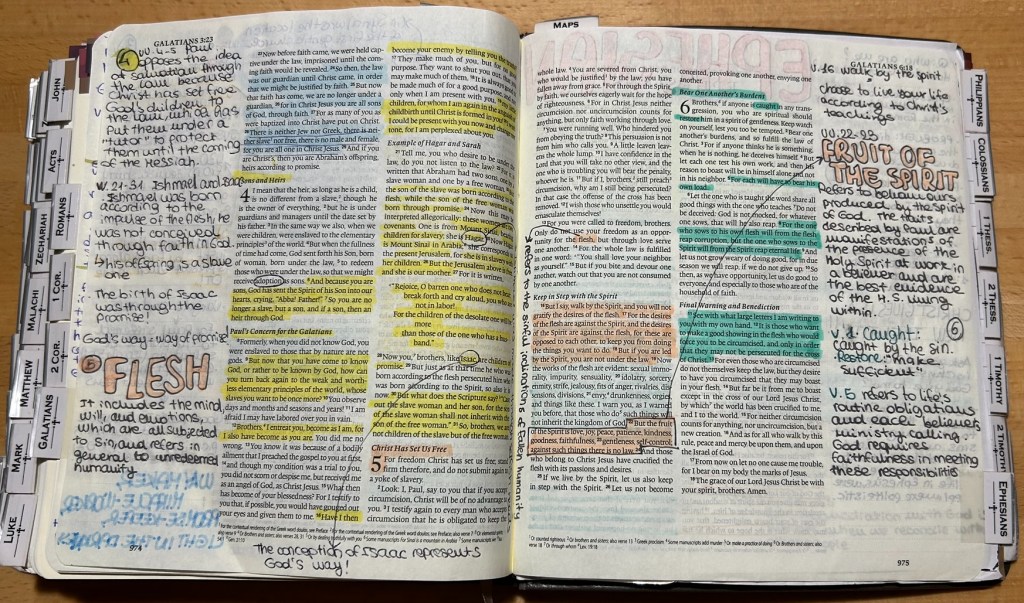 GALATIANS 3:23
④ vv. 4-5 Paul
opposes the idea
of salvation through
the Law because
Christ has set free
God's children to
the Law, which has
put them under a
"tutor" to protect
them until the coming
of the Messiah.
vv. 21-31 Ishmael and Isaac
Ishmael was born
according to the
impulse of the flesh, he
was not conceived
through faith in God.
his offspring is a slave
one
The birth of Isaac
was through the
promise!
God's way = way of promise!
⑤ FLESH
It includes the mind,
will, and emotions,
which are all subjected
to sin, and refers in
general to unredeemed
humanity
974
JOHN
ACTS
ROMANS
ZECHARIAH
1 COR.
MALACHI
2 COR.
MATTHEW
GALATIANS
MARK
LUKE
23Now before faith came, we were held cap-
tive under the law, imprisoned until the com-
ing faith would be revealed. 24So then, the law
was our guardian until Christ came, in order
that we might be justified by faith. 25But now
that faith has come, we are no longer under a
guardian, 26for in Christ Jesus you are all sons
of God, through faith. 27For as many of you as
were baptized into Christ have put on Christ.
28There is neither Jew nor Greek, there is nei-
ther slave nor free, there is no male and female,
for you are all one in Christ Jesus. 29And if you
are Christ's, then you are Abraham's offspring,
heirs according to promise.
Sons and Heirs
4 I mean that the heir, as long as he is a child,
is no different from a slave, though he
is the owner of everything, 2but he is under
guardians and managers until the date set by
his father. 3In the same way we also, when we
were children, were enslaved to the elementary
principles of the world. 4But when the fullness
of time had come, God sent forth his Son, born
of woman, born under the law, 5to redeem
those who were under the law, so that we might
receive adoption as sons. 6And because you are
sons, God has sent the Spirit of his Son into our
hearts, crying, "Abba! Father!" 7So you are no
longer a slave, but a son, and if a son, then an
heir through God.
Paul's Concern for the Galatians
8Formerly, when you did not know God, you
were enslaved to those that by nature are not
gods. 9But now that you have come to know
God, or rather to be known by God, how can
you turn back again to the weak and worth-
less elementary principles of the world, whose
slaves you want to be once more? 10You observe
days and months and seasons and years! 11I am
afraid I may have labored over you in vain.
12Brothers, I entreat you, become as I am, for
I also have become as you are. You did me no
wrong. 13You know it was because of a bodily
ailment that I preached the gospel to you at first,
14and though my condition was a trial to you,
you did not scorn or despise me, but received me
as an angel of God, as Christ Jesus. 15What then
has become of your blessedness? For I testify to
you that, if possible, you would have gouged out
your eyes and given them to me. 16Have I then
become your enemy by telling you the truth?
17They make much of you, but for no good
purpose. They want to shut you out, that you
may make much of them. 18It is always good to
be made much of for a good purpose, and not
only when I am present with you, 19my little
children, for whom I am again in the anguish of
childbirth until Christ is formed in you! 20I wish
I could be present with you now and change my
tone, for I am perplexed about you.
Example of Hagar and Sarah
21Tell me, you who desire to be under the
law, do you not listen to the law? 22For it is
written that Abraham had two sons, one by a
slave woman and one by a free woman. 23But
the son of the slave was born according to the
flesh, while the son of the free woman was
born through promise. 24Now this may be
interpreted allegorically: these women are two
covenants. One is from Mount Sinai, bearing
children for slavery; she is Hagar. 25Now Hagar
is Mount Sinai in Arabia; she corresponds to
the present Jerusalem, for she is in slavery with
her children. 26But the Jerusalem above is free,
and she is our mother. 27For it is written,
"Rejoice, O barren one who does not bear;
break forth and cry aloud, you who are
not in labor!
For the children of the desolate one will be
more
than those of the one who has a
husband."
28Now you, brothers, like Isaac, are children of
promise. 29But just as at that time he who was
born according to the flesh persecuted him who
was born according to the Spirit, so also it is
now. 30But what does the Scripture say? "Cast
out the slave woman and her son, for the son
of the slave woman shall not inherit with the
son of the free woman." 31So, brothers, we are
not children of the slave but of the free woman.
Christ Has Set Us Free
5 For freedom Christ has set us free; stand
firm therefore, and do not submit again to
a yoke of slavery.
2Look: I, Paul, say to you that if you accept
circumcision, Christ will be of no advantage to
you. 3I testify again to every man who accepts
circumcision that he is obligated to keep the
The conception of Isaac represents
God's way!
MAPS
refers to the sinful inclinations of fallen humanity
whole law. 4You are severed from Christ, you
who would be justified by the law; you have
fallen away from grace. 5For through the Spirit,
by faith, we ourselves eagerly wait for the hope
of righteousness. 6For in Christ Jesus neither
circumcision nor uncircumcision counts for
anything, but only faith working through love.
7You were running well. Who hindered you
from obeying the truth? 8This persuasion is not
from him who calls you. 9A little leaven leav-
ens the whole lump. 10I have confidence in the
Lord that you will take no other view, and the
one who is troubling you will bear the penalty,
whoever he is. 11But if I, brothers, still preach
circumcision, why am I still being persecuted?
In that case the offense of the cross has been
removed. 12I wish those who unsettle you would
emasculate themselves!
13For you were called to freedom, brothers.
Only do not use your freedom as an oppor-
tunity for the flesh, but through love serve
one another. 14For the whole law is fulfilled
in one word: "You shall love your neighbor
as yourself." 15But if you bite and devour one
another, watch out that you are not consumed
by one another.
Keep in Step with the Spirit
16But I say, walk by the Spirit, and you will not
gratify the desires of the flesh. 17For the desires
of the flesh are against the Spirit, and the desires
of the Spirit are against the flesh, for these are
opposed to each other, to keep you from doing
the things you want to do. 18But if you are led
by the Spirit, you are not under the law. 19Now
the works of the flesh are evident: sexual immo-
rality, impurity, sensuality, 20idolatry, sorcery,
enmity, strife, jealousy, fits of anger, rivalries, dis-
sensions, divisions, 21envy, drunkenness, orgies,
and things like these. I warn you, as I warned
you before, that those who do such things will
not inherit the kingdom of God. 22But the fruit
of the Spirit is love, joy, peace, patience, kindness,
goodness, faithfulness, 23gentleness, self-control;
against such things there is no law. 24And those
who belong to Christ Jesus have crucified the
flesh with its passions and desires.
25If we live by the Spirit, let us also keep
in step with the Spirit. 26Let us not become
conceited, provoking one another, envying one
another.
Bear One Another's Burdens
6 Brothers, if anyone is caught in any trans-
gression, you who are spiritual should
restore him in a spirit of gentleness. Keep watch
on yourself, lest you too be tempted. 2Bear one
another's burdens, and so fulfill the law of
Christ. 3For if anyone thinks he is something,
when he is nothing, he deceives himself. 4But
let each one test his own work, and then his
reason to boast will be in himself alone and not
in his neighbor. 5For each will have to bear his
own load.
6Let the one who is taught the word share all
good things with the one who teaches. 7Do not
be deceived: God is not mocked, for whatever
one sows, that will he also reap. 8For the one
who sows to his own flesh will from the flesh
reap corruption, but the one who sows to the
Spirit will from the Spirit reap eternal life. 9And
let us not grow weary of doing good, for in due
season we will reap, if we do not give up. 10So
then, as we have opportunity, let us do good to
everyone, and especially to those who are of the
household of faith.
Final Warning and Benediction
11See with what large letters I am writing to
you with my own hand. 12It is those who want
to make a good showing in the flesh who would
force you to be circumcised, and only in order
that they may not be persecuted for the cross
of Christ. 13For even those who are circumcised
do not themselves keep the law, but they desire
to have you circumcised that they may boast
in your flesh. 14But far be it from me to boast
except in the cross of our Lord Jesus Christ,
by which the world has been crucified to me,
and I to the world. 15For neither circumcision
counts for anything, nor uncircumcision, but a
new creation. 16And as for all who walk by this
rule, peace and mercy be upon them, and upon
the Israel of God.
17From now on let no one cause me trouble,
for I bear on my body the marks of Jesus.
18The grace of our Lord Jesus Christ be with
your spirit, brothers. Amen.
GALATIANS 6:18
v. 16 walk by the spirit
choose to live your life
according to Christ's
teachings
vv. 22-23
FRUIT OF
THE SPIRIT
Refers to behaviours
produced by the spirit
of God. The traits
described by Paul are
manifestations of
the presence of the
Holy Spirit at work in
a believer and are
the best evidence
of the H.S. living
within.
⑥
v. 1 Caught:
caught the sin.
Restore: "make
sufficient"
v. 5 refers to life's
routine obligations
and each believers
ministry calling.
God requires
faithfulness in meeting
these responsibilities
975
PHILIPPIANS
COLOSSIANS
1 THESS.
2 THESS.
1 TIMOTHY
2 TIMOTHY
EPHESIANS